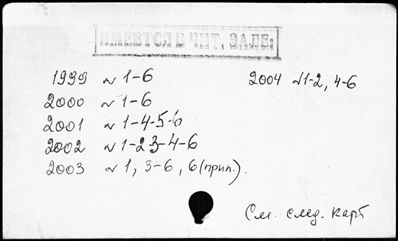 ИМЕЕТСЯ В ЧИТ. ЗАЛЕ:
1999 № 1-6
2000 № 1-6
2001 № 1-4-5-6
2002 № 1-2 3-4-6
2003 № 1, 3-6, 6 (прил.).
2004 № 1-2, 4-6
См. след. карт